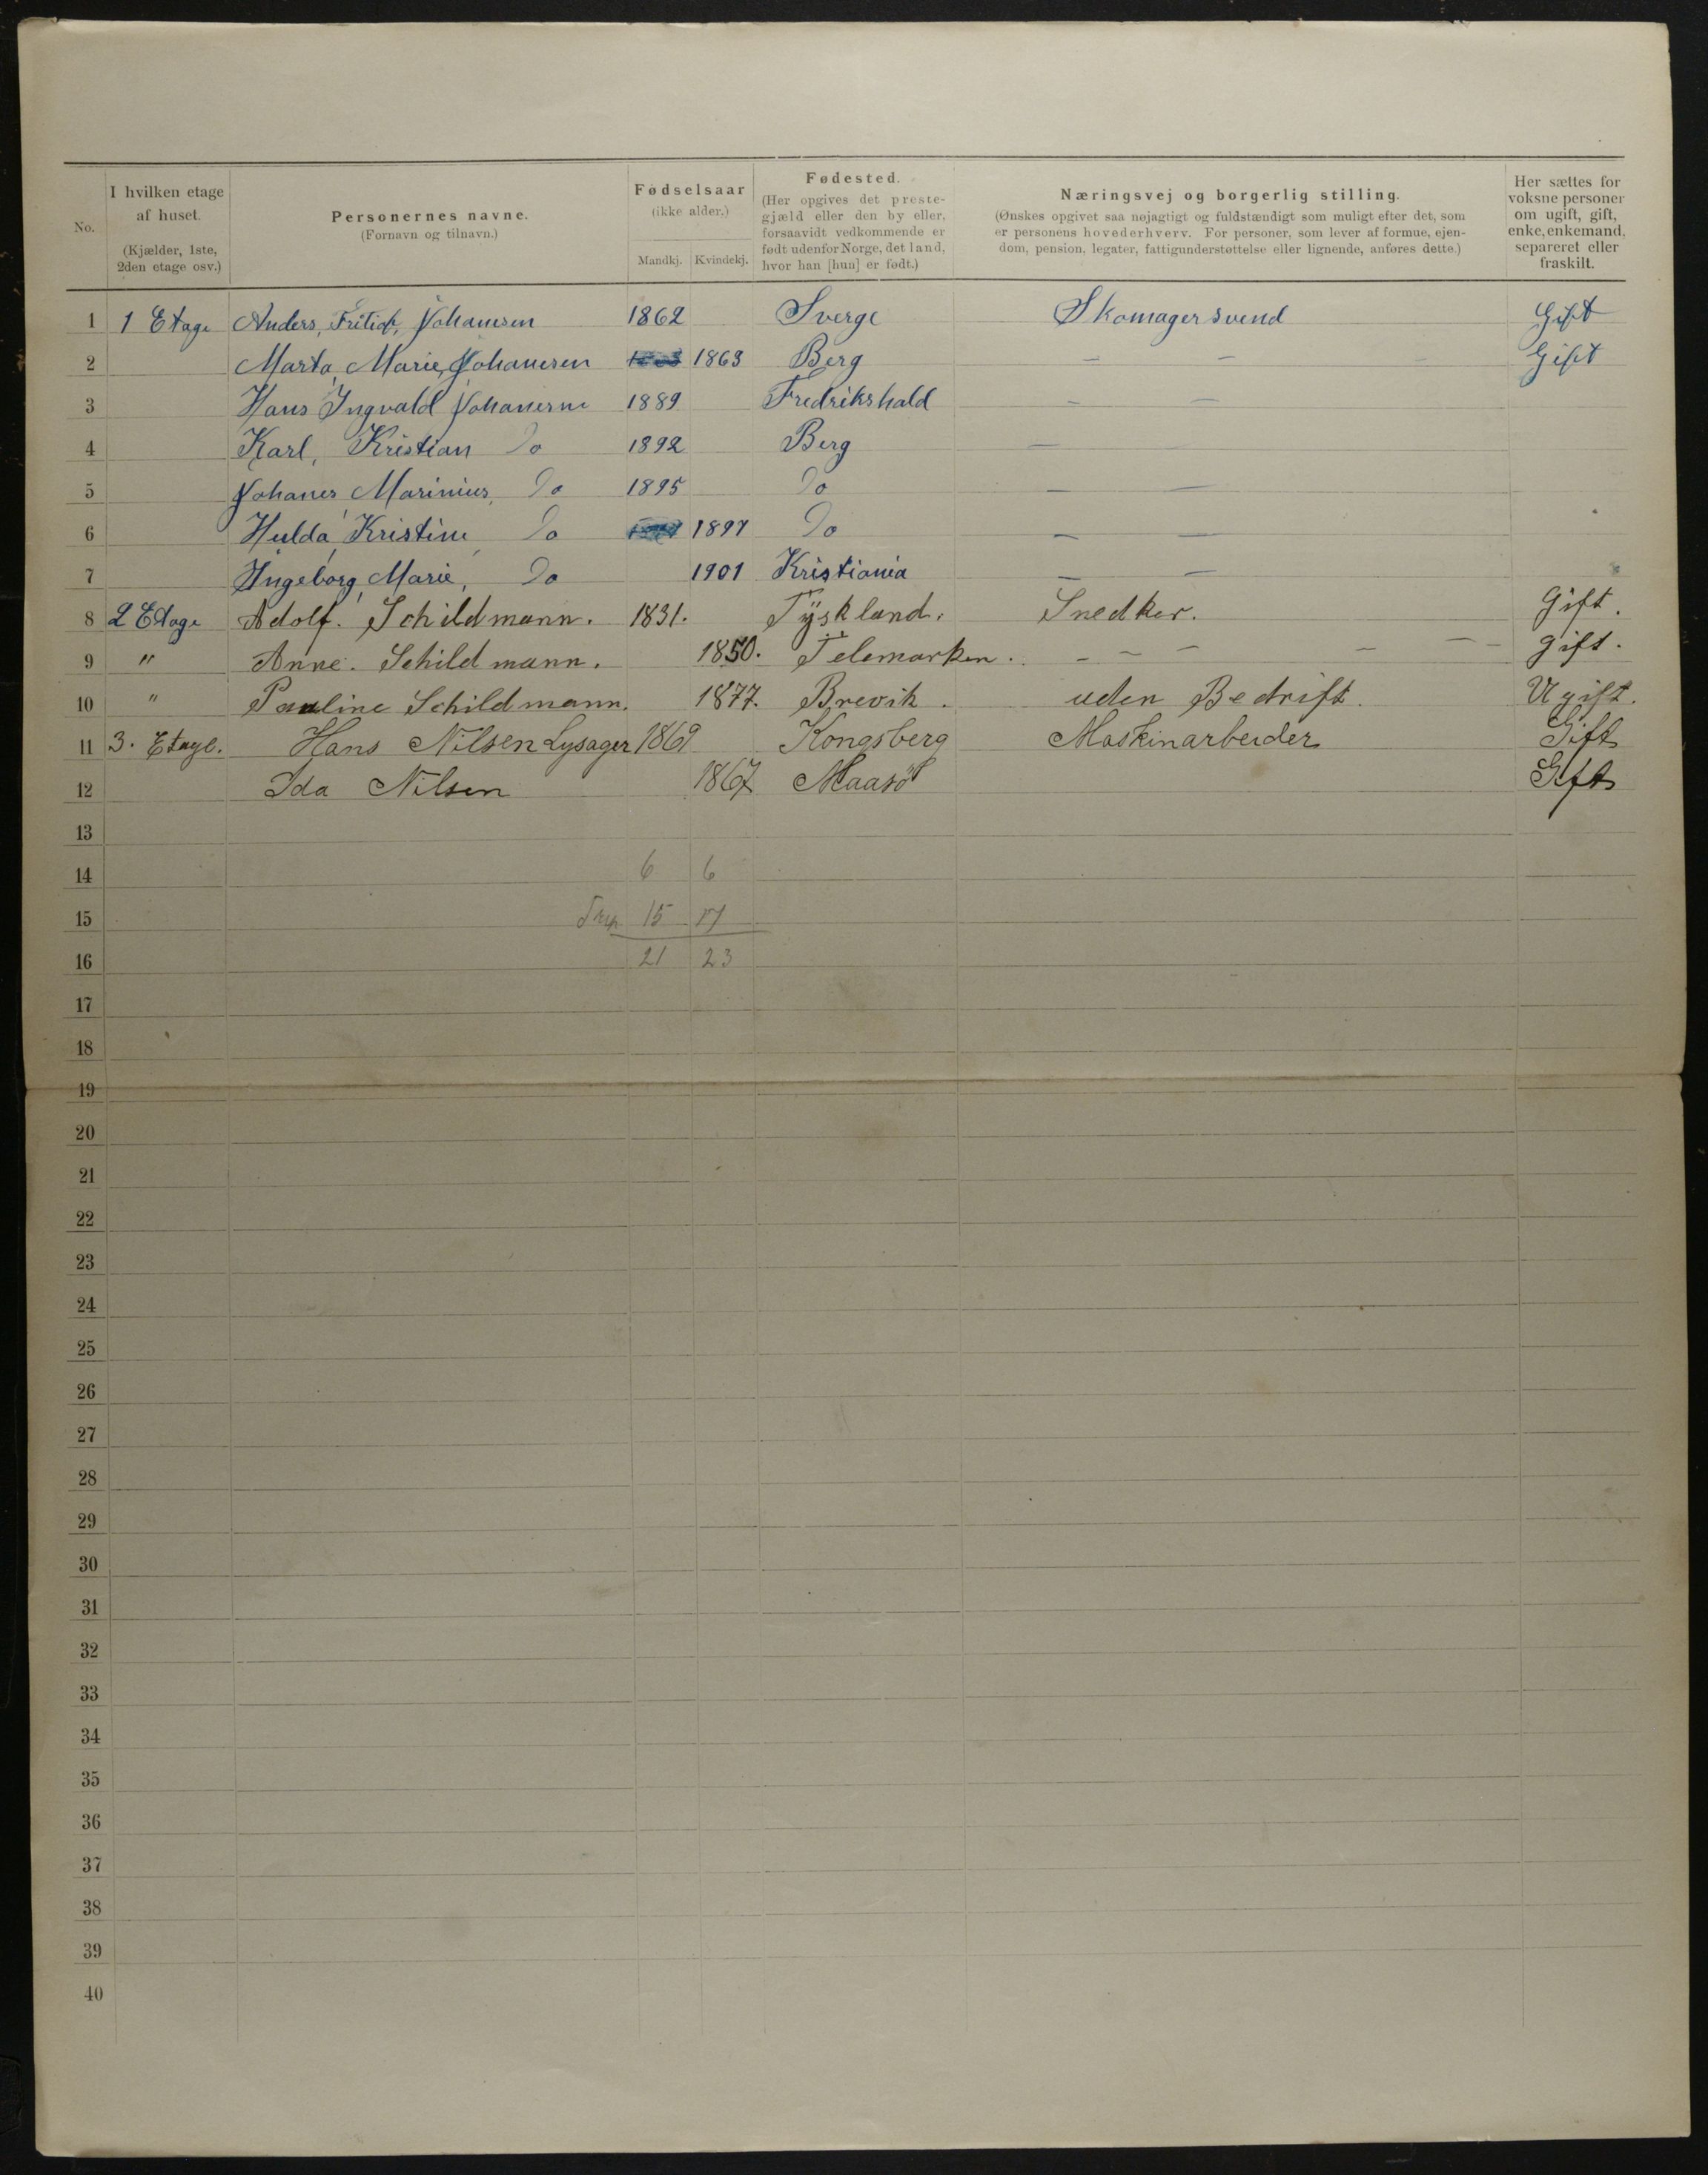 No.
I hvilken etage
af huset.
(Kjælder, 1ste,
2den etage osv.)
Personernes navne.
(Fornavn og tilnavn.)
Fødselsaar
(ikke alder.)
Mandkj. Kvindekj.
Fødested.
(Her opgives det preste-
gjæld eller den by eller,
forsaavidt vedkommende er
født udenfor Norge, det land,
hvor han [hun] er født.)
Næringsvej og borgerlig stilling.
(Ønskes opgivet saa nøjagtigt og fuldstændigt som muligt efter det, som
er personens hovederhverv. For personer, som lever af formue, ejen-
dom, pension, legater, fattigunderstøttelse eller lignende, anføres dette.)
Her sættes for
voksne personer
om ugift, gift,
enke, enkemand,
separeret eller
fraskilt.
1 1 Etage Anders, Fritiof, Johansen 1862 Sverge Skomagersvend Gift
2 Marta, Marie, Johanesen 1863 Berg — — — Gift
3 Hans Ingvald Johanesen 1889 Fredrikshald — —
4 Karl, Kristian Do 1892 Berg — —
5 Johanes Marinius, Do 1895 Do — —
6 Hulda, Kristine, Do 1897 Do — —
7 Ingeborg, Marie, Do 1901 Kristiania — —
8 2 Etage Adolf. Schildmann. 1831. Tÿskland. Snedker. Gift.
9 " Anne. Schildmann. 1850. Telemarken. - - - - - gift.
10 " Pauline Schildmann. 1877. Brevik. uden Bedrift. Ugift.
11 3. Etage. Hans Nilsen Lysager 1869 Kongsberg Maskinarbeider Gift
12 Ida Nilsen 1867 Maasö Gift
13
14 6 6
15 15 17
16 21 23
17
18
19
20
21
22
23
24
25
26
27
28
29
30
31
32
33
34
35
36
37
38
39
40